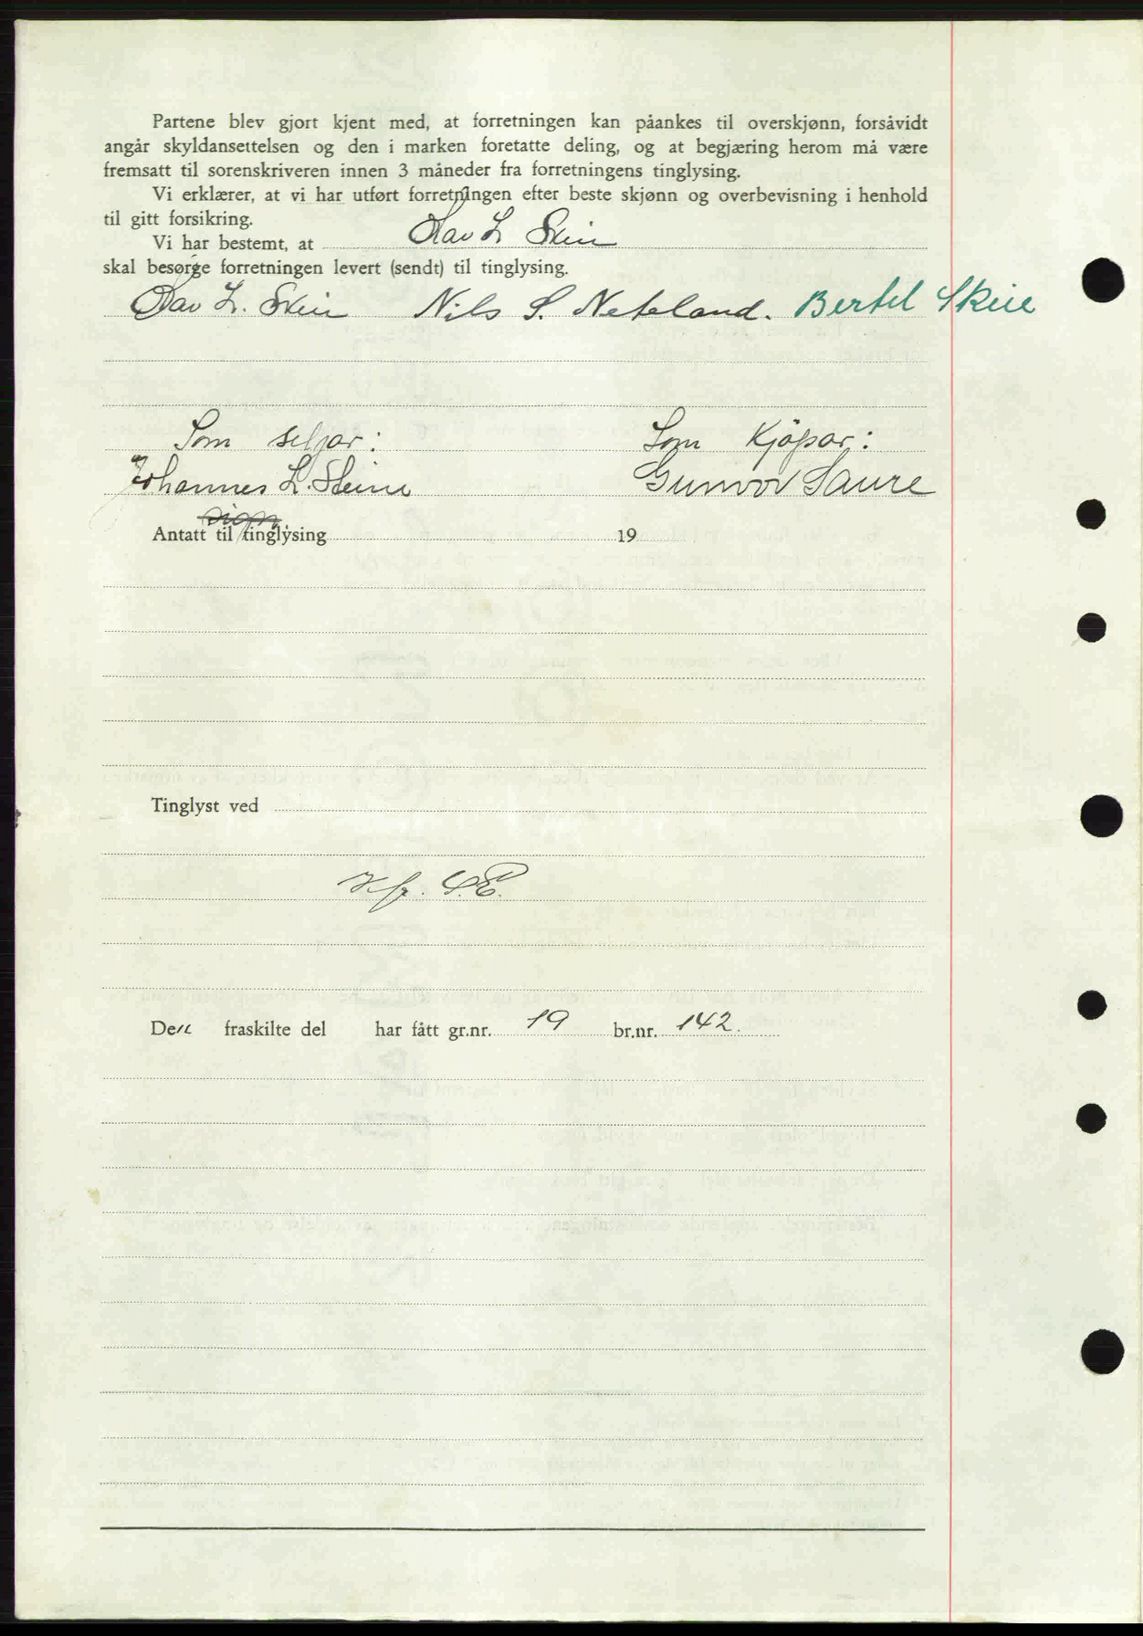 Partene blev gjort kjent med, at forretningen kan påankes til overskjønn, forsåvidt
angår skyldansettelsen og den i marken foretatte deling, og at begjæring herom må være
fremsatt til sorenskriveren innen 3 måneder fra forretningens tinglysing.
Vi erklærer, at vi har utført forretningen efter beste skjønn og overbevisning i henhold
til gitt forsikring.
Vi har bestemt, at Olav L. Skeie
skal besørge forretningen levert (sendt) til tinglysing.
Olav L. Skeie Nils S. Neteland. Bertel Skeie
Som seljar: Som Kjöpar:
Johannes L. Steine Gunvor Saure
sign.
Antatt til tinglysing 19
Tinglyst ved
Den fraskilte del har fått gr.nr. 19 br.nr. 142.